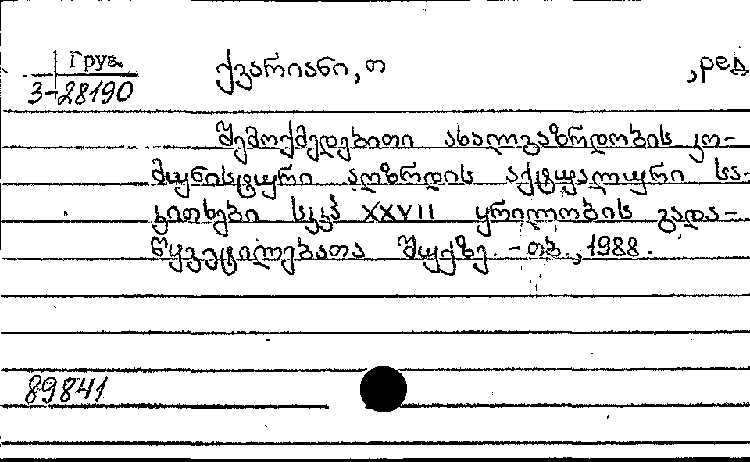 Груз.
3-28190
ქვარიანი, თ , ред
შემოქმედებითი ახალგაზრდობის კო-
მუნისტური აღზრდის აქტუალური სა-
კითხები სკკპ XXVII ყრილობის გადა-
წყვეტილებათა შუქზე. - თბ., 1988.
89841